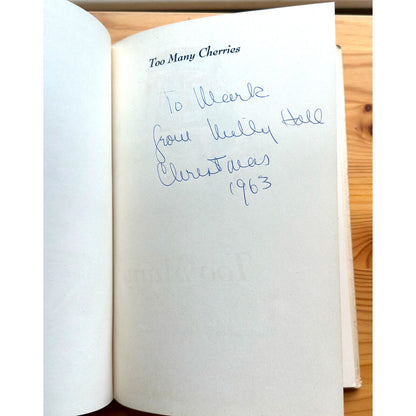 Too Many Cherries
To Mark
from Milly Hall
Christmas
1963
Too Many